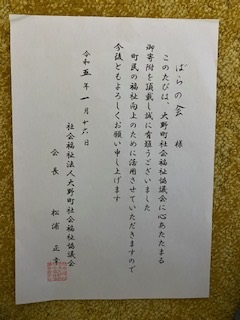 ばらの会 様
このたびは、大野町社会福祉協議会に心あたたまる
御寄附を頂戴し誠に有難うございました
町民の福祉向上のために活用させていただきますので
今後ともよろしくお願い申し上げます
令和五年一月十六日
社会福祉法人大野町社会福祉協議会
会長 松浦正幸